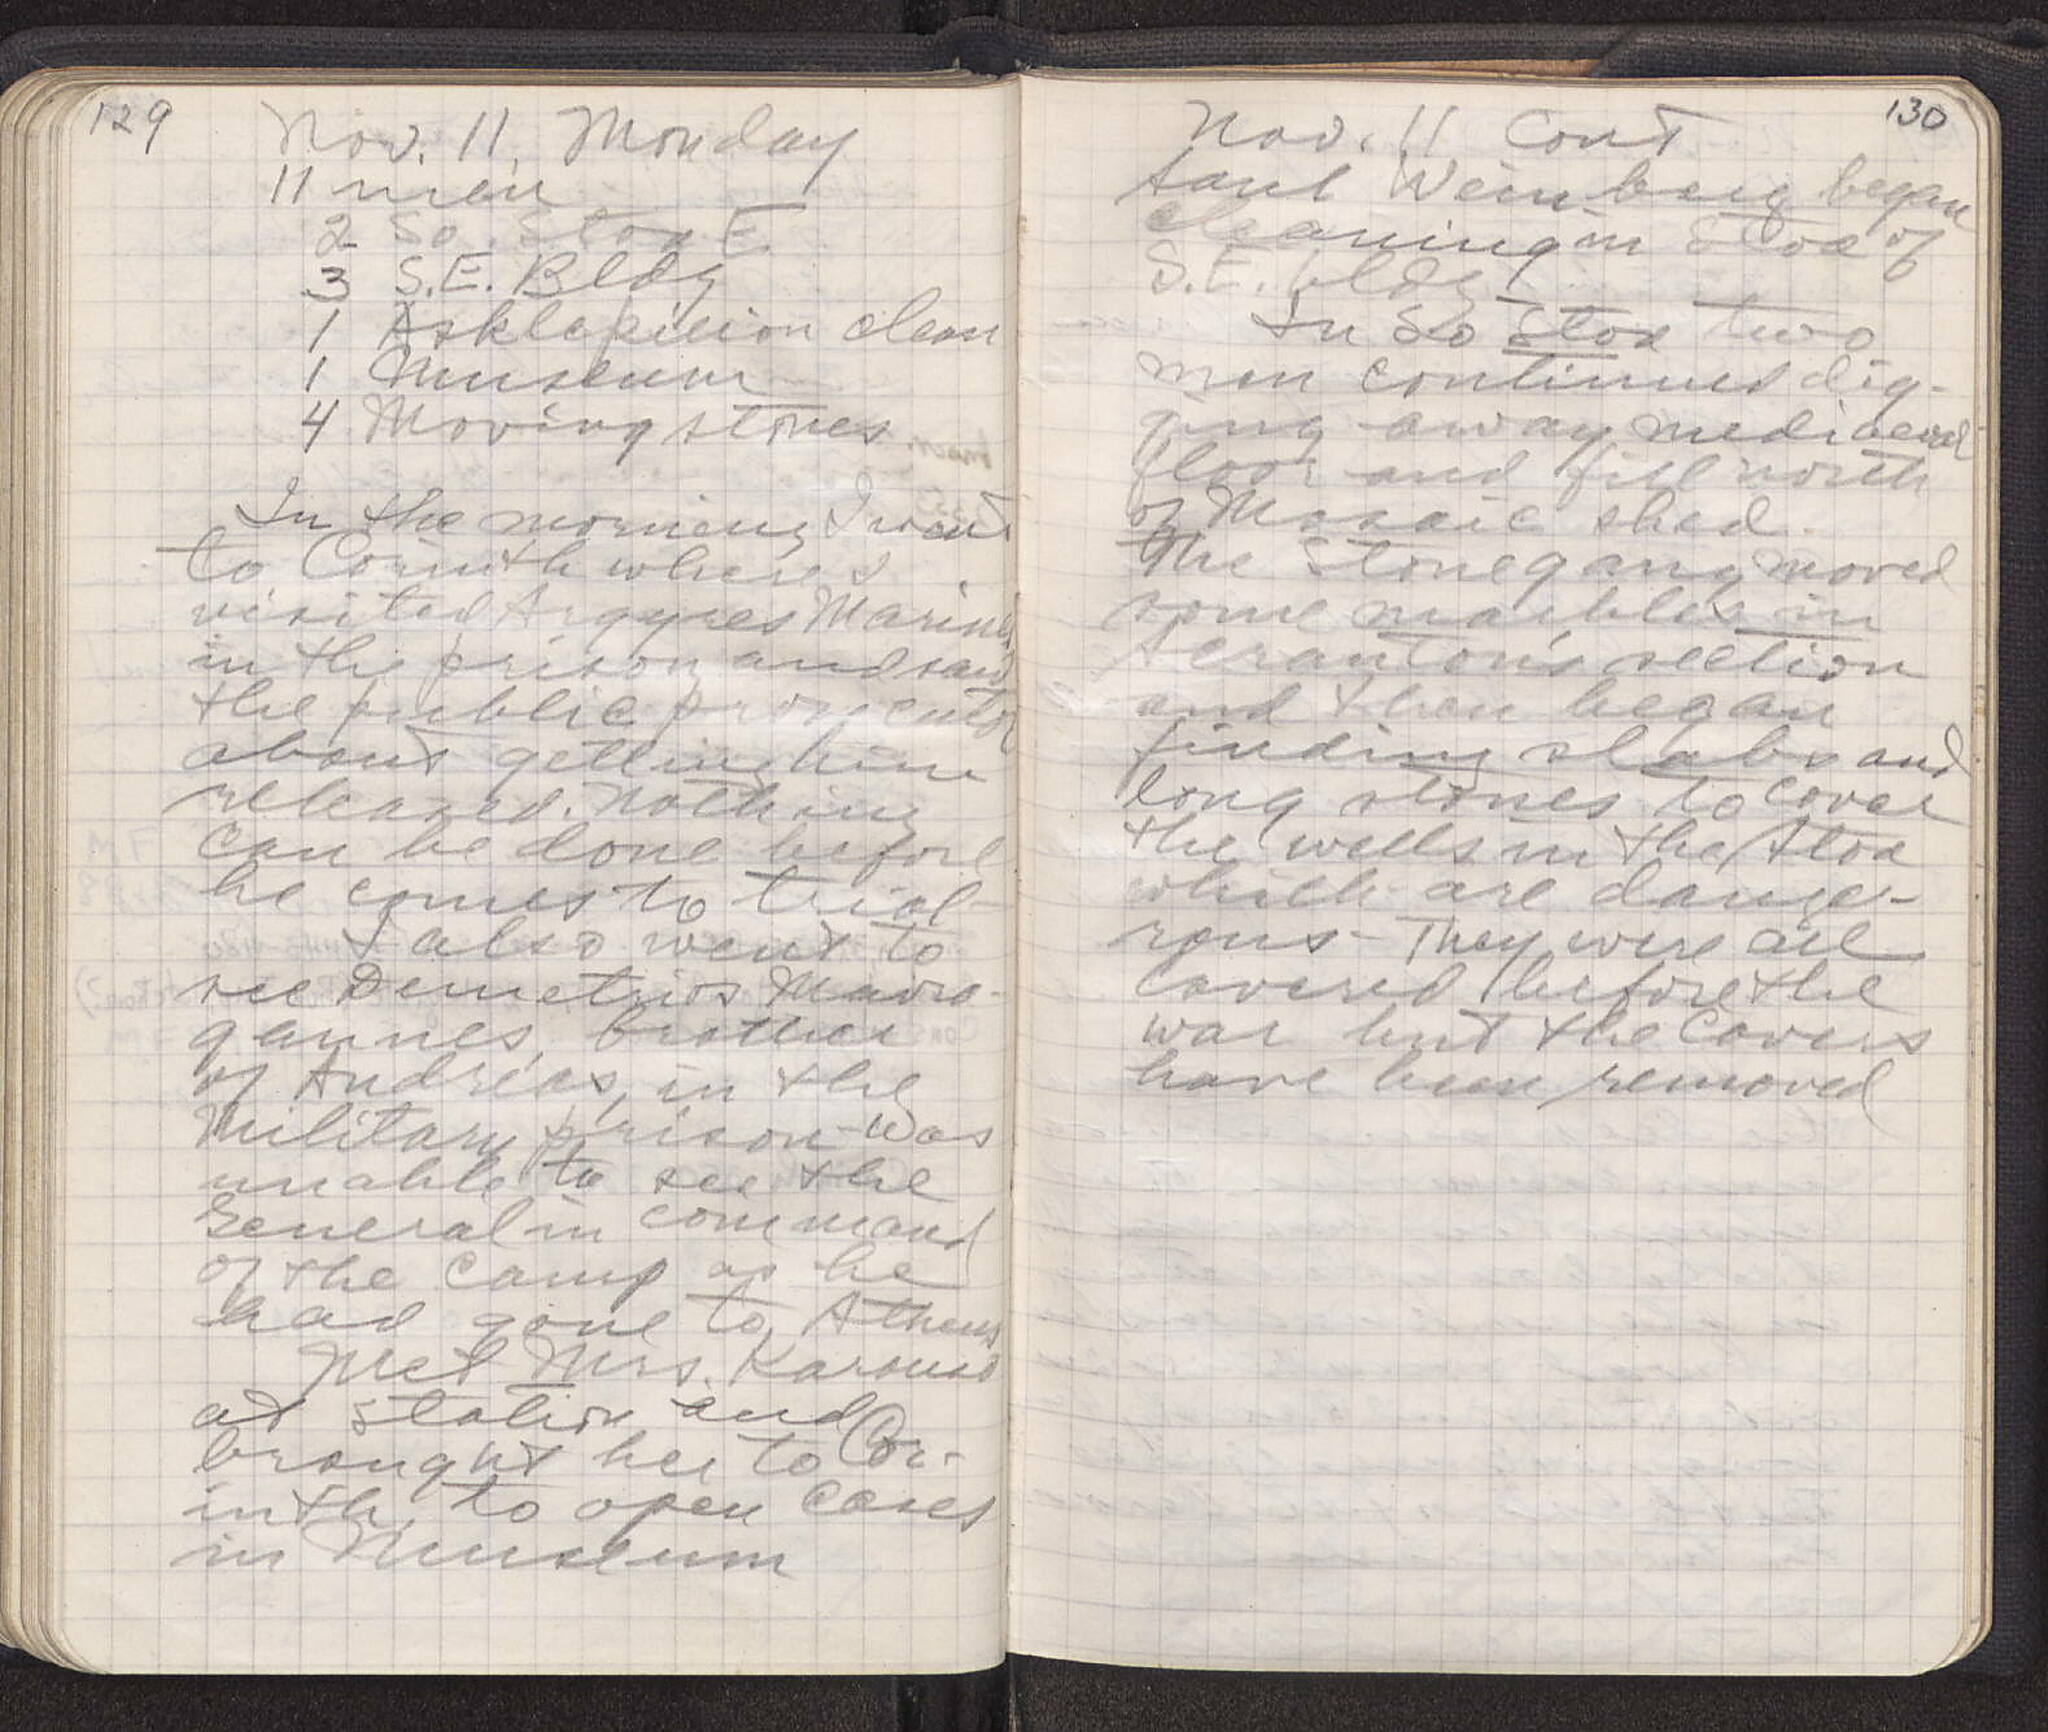 129
Nov. 11, Monday
11 men
2 So. Stoa E.
3 S.E. Bldg
1 Asklepieion clean
1 Museum
4 Moving stones
In the morning I went
to Corinth where I
visited Argyres Marinos
in the prison and saw
the public prosecutor
about getting him
released. Nothing
can be done before
he comes to trial-
I also went to
see Demetrios Mavro-
gannes, brother
of Andreas, in the
Military prison - Was
unable to see the
General in command
of the Camp as he
had gone to Athens
Met Mrs. Karouso
at station and
brought her to Cor-
inth, to open cases
in Museum
130
Nov. 11 Cont
Saul Weinberg began
cleaning in Stoa of
S.E. bldg.
In So Stoa two
men continued dig-
ging away mediaeval
floor and fill north
of Mosaic shed.
The Stone gang moved
some marbles in
Scranton's section
and then began
finding slabs and
long stones to cover
the wells in the Stoa
which are dange-
rous - They were all
covered before the
war but the Covers
have been removed